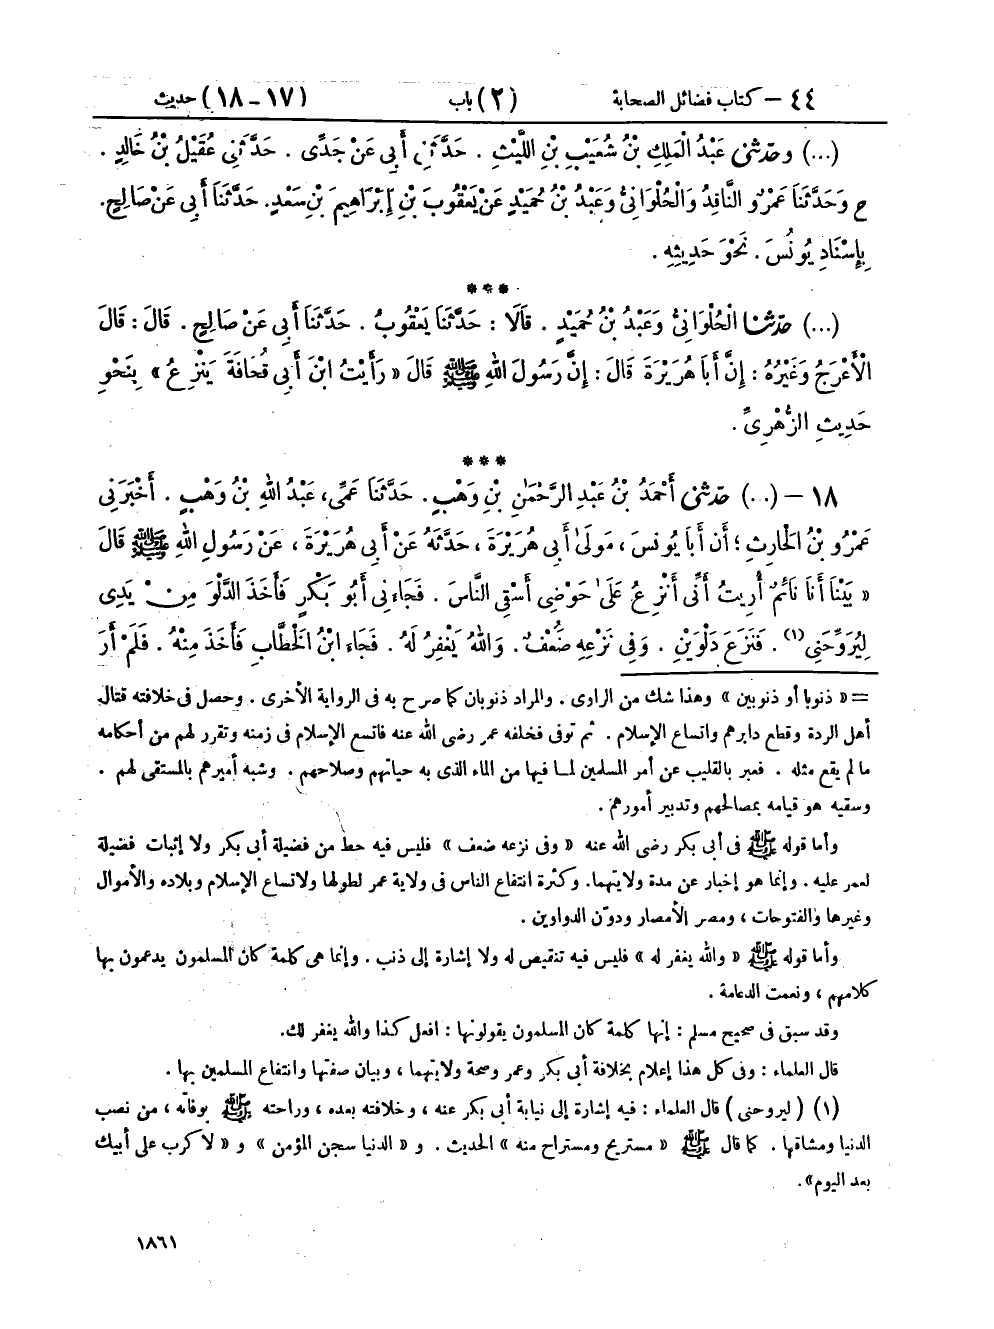 ٤٤ – كتاب فضائل الصحابة (٢) باب (١٧-١٨) حديث
(...) وحَدَّثَنِي عَبْدُ الْمَلِكِ بْنُ شُعَيْبِ بْنِ اللَّيْثِ . حَدَّثَنِي أَبِي عَنْ جَدِّي . حَدَّثَنِي عُقَيْلُ بْنُ خَالِدٍ .
ح وَحَدَّثَنَا عَمْرٌو النَّاقِدُ وَالْحُلْوَانِيُّ وَعَبْدُ بْنُ حُمَيْدٍ عَنْ يَعْقُوبَ بْنِ إِبْرَاهِيمَ بْنِ سَعْدٍ. حَدَّثَنَا أَبِي عَنْ صَالِحٍ.
بِإِسْنَادِ يُونُسَ . نَحْوَ حَدِيثِهِ .
***
(...) حَدَّثَنَا الْحُلْوَانِيُّ وَعَبْدُ بْنُ حُمَيْدٍ . قَالَا : حَدَّثَنَا يَعْقُوبُ . حَدَّثَنَا أَبِي عَنْ صَالِحٍ . قَالَ : قَالَ
الْأَعْرَجُ وَغَيْرُهُ : إِنَّ أَبَا هُرَيْرَةَ قَالَ : إِنَّ رَسُولَ اللهِ ﷺ قَالَ « رَأَيْتُ ابْنَ أَبِي قُحَافَةَ يَنْزِعُ » بِنَحْوِ
حَدِيثِ الزُّهْرِيِّ .
***
١٨ – (...) حَدَّثَنِي أَحْمَدُ بْنُ عَبْدِ الرَّحْمَنِ بْنِ وَهْبٍ . حَدَّثَنَا عَمِّي، عَبْدُ اللهِ بْنُ وَهْبٍ . أَخْبَرَنِي
عَمْرُو بْنُ الْحَارِثِ ؛ أَنَّ أَبَا يُونُسَ ، مَوْلَى أَبِي هُرَيْرَةَ ، حَدَّثَهُ عَنْ أَبِي هُرَيْرَةَ ، عَنْ رَسُولِ اللهِ ﷺ قَالَ
« بَيْنَا أَنَا نَائِمٌ أُرِيتُ أَنِّي أَنْزِعُ عَلَى حَوْضِي أَسْقِي النَّاسَ . فَجَاءَنِي أَبُو بَكْرٍ فَأَخَذَ الدَّلْوَ مِنْ يَدِي
لِيُرَوِّحَنِي (١) . فَنَزَعَ دَلْوَيْنِ . وَفِي نَزْعِهِ ضَعْفٌ . وَاللهُ يَغْفِرُ لَهُ . فَجَاءَ ابْنُ الْخَطَّابِ فَأَخَذَ مِنْهُ . فَلَمْ أَرَ
= « ذنوبا أو ذنوبين » وهذا شك من الراوى . والمراد ذنوبان كما صرح به فى الرواية الأخرى . وحصل فى خلافته قتال
أهل الردة وقطع دابرهم واتساع الإسلام . ثم توفى فخلفه عمر رضى الله عنه فاتسع الإسلام فى زمنه وتقرر لهم من أحكامه
ما لم يقع مثله . فعبر بالقليب عن أمر المسلمين لما فيها من الماء الذى به حياتهم وصلاحهم . وشبه أميرهم بالمستقى لهم .
وسقيه هو قيامه بمصالحهم وتدبير أمورهم .
وأما قوله ﷺ فى أبى بكر رضى الله عنه « وفى نزعه ضعف » فليس فيه حط من فضيلة أبى بكر ولا إثبات فضيلة
لعمر عليه . وإنما هو إخبار عن مدة ولايتهما. وكثرة انتفاع الناس فى ولاية عمر لطولها ولاتساع الإسلام وبلاده والأموال
وغيرها والفتوحات ، ومصر الأمصار ودوّن الدواوين .
وأما قوله ﷺ « والله يغفر له » فليس فيه تنقيص له ولا إشارة إلى ذنب . وإنما هى كلمة كان المسلمون يدعمون بها
كلامهم ، ونعمت الدعامة .
وقد سبق فى صحيح مسلم : إنها كلمة كان المسلمون يقولونها : افعل كذا والله يغفر لك.
قال العلماء : وفى كل هذا إعلام بخلافة أبى بكر وعمر وصحة ولايتهما ، وبيان صفتها وانتفاع المسلمين بها .
(١) ( ليروحنى ) قال العلماء : فيه إشارة إلى نيابة أبى بكر عنه ، وخلافته بعده ، وراحته ﷺ بوفاته ، من نصب
الدنيا ومشاقها . كما قال ﷺ « مستريح ومستراح منه » الحديث . و « الدنيا سجن المؤمن » و « لا كرب على أبيك
بعد اليوم».
١٨٦١